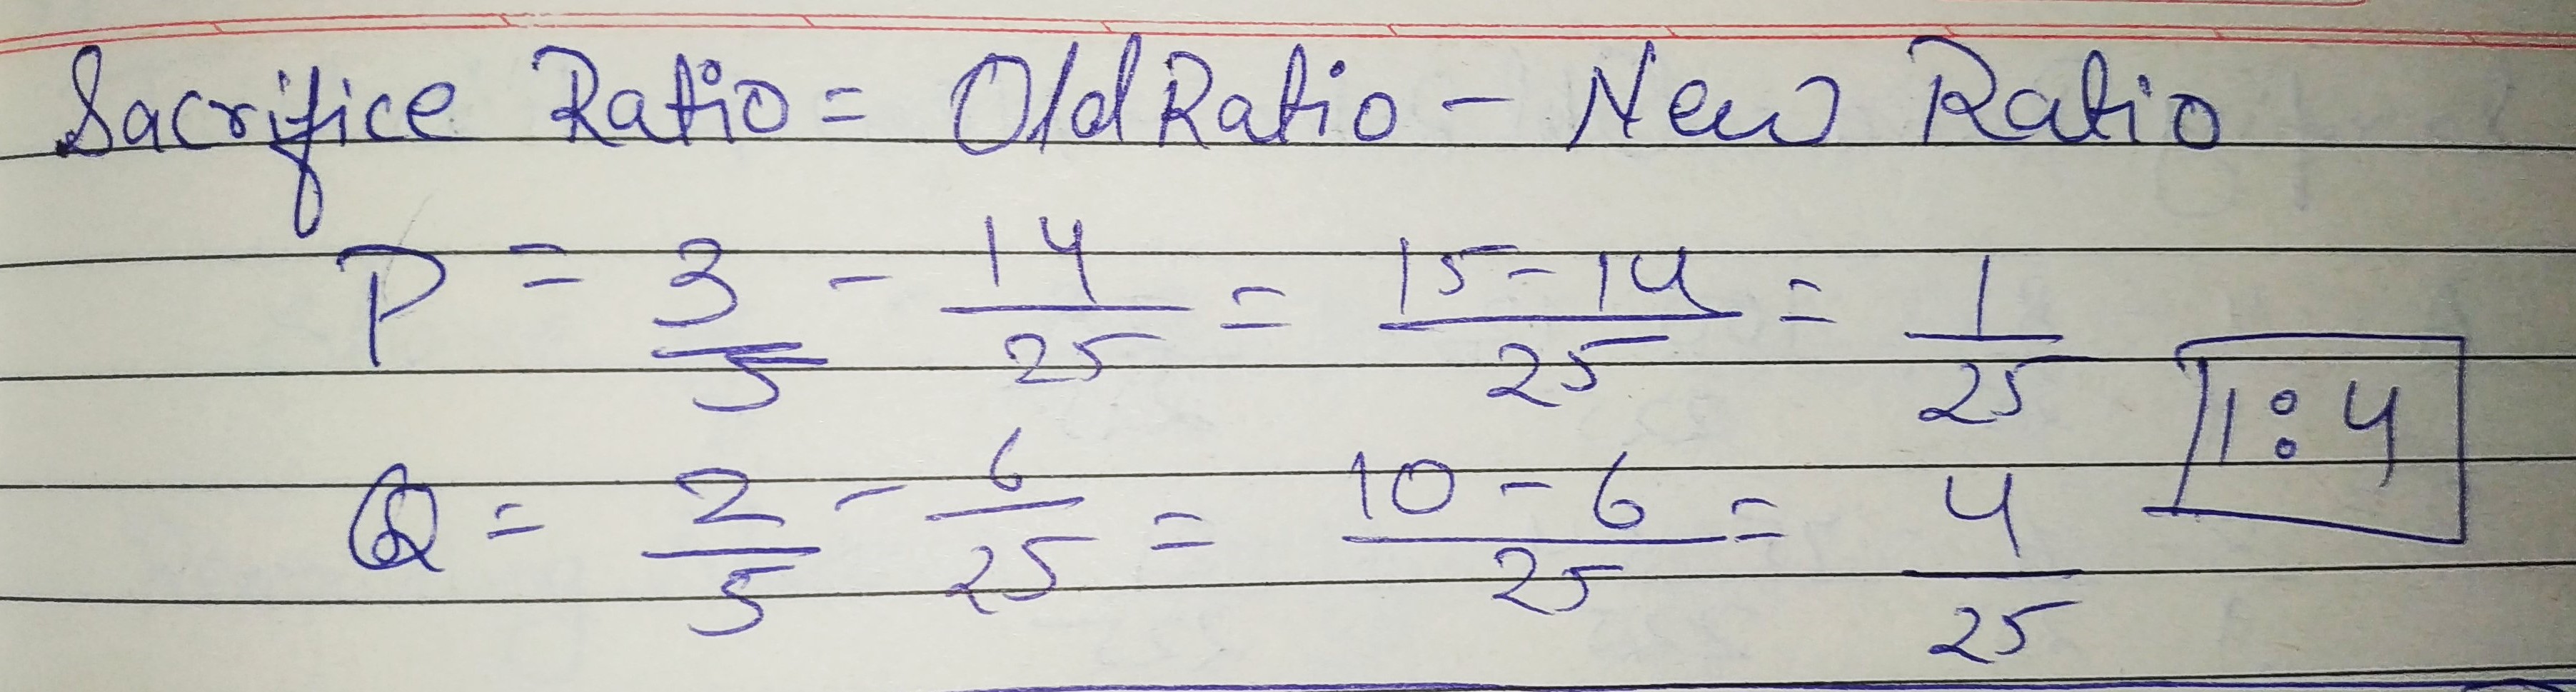 Sacrifice Ratio = Old Ratio - New Ratio
P = 3/5 - 14/25 = 15-14/25 = 1/25
1:4
Q = 2/5 - 6/25 = 10-6/25 = 4/25